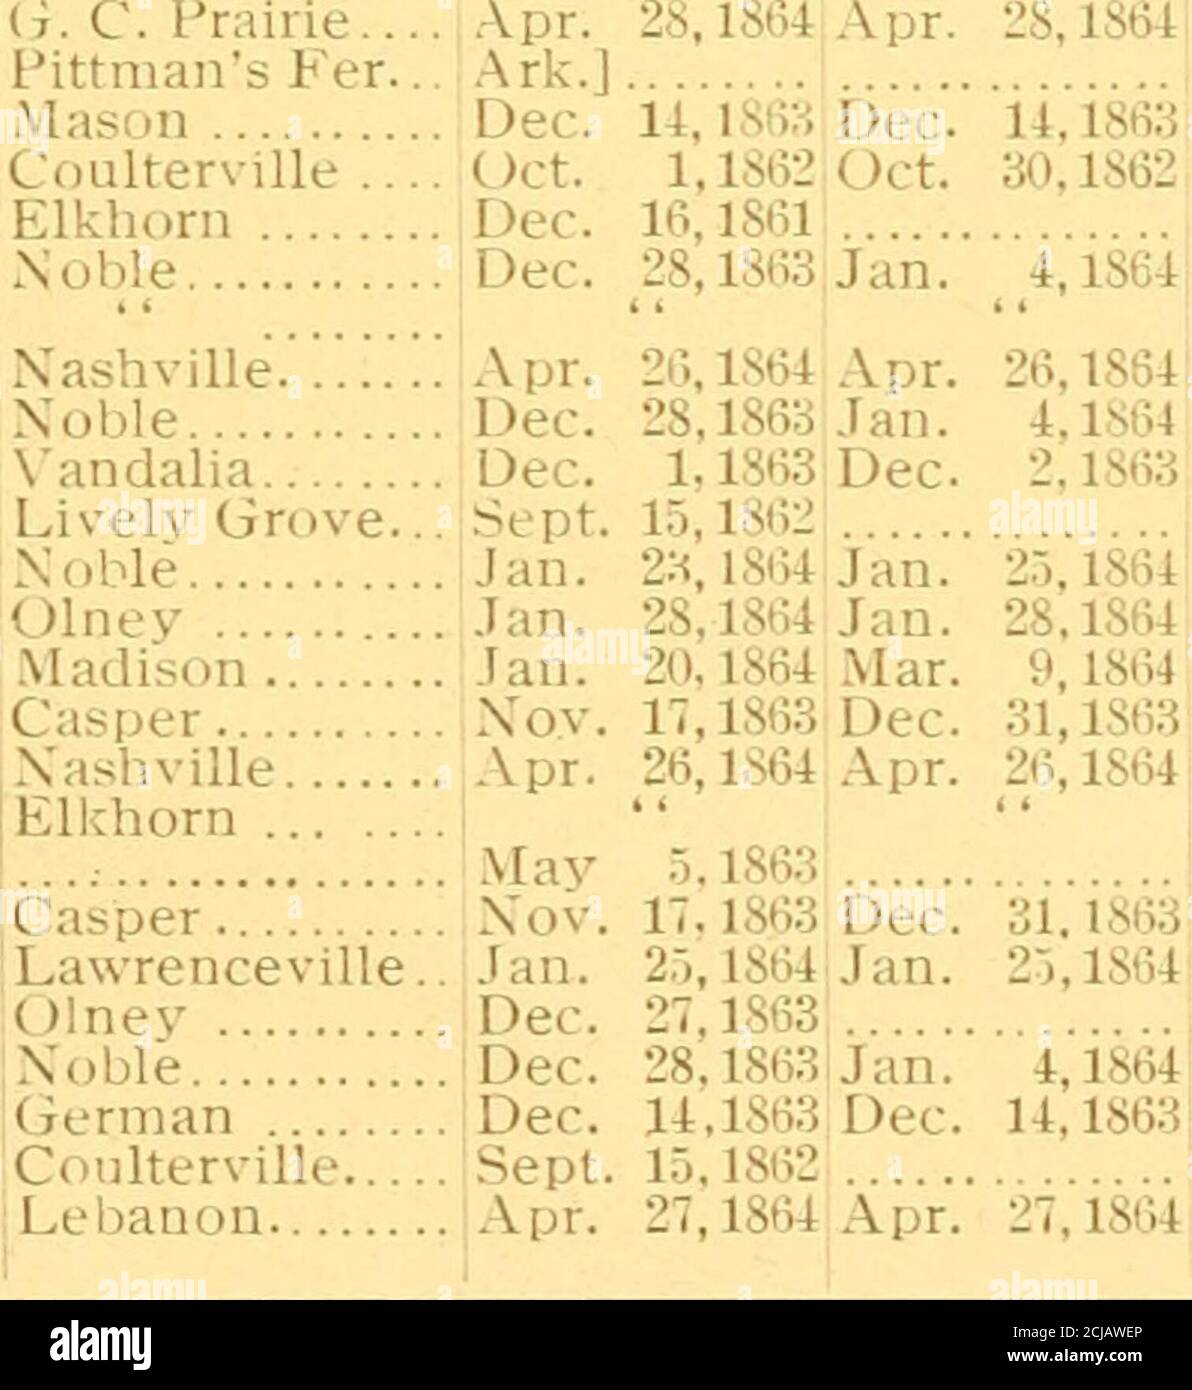 G. C. Prairie.... Apr. 28, 1864 Apr. 28, 1864
Pittman's Fer... Ark.] ........ ..............
Mason ........... Dec. 14, 1863 Dec. 14, 1863
Coulterville .... Oct. 1, 1862 Oct. 30, 1862
Elkhorn ........ Dec. 16, 1861 ..............
Noble............ Dec. 28, 1863 Jan. 4, 1864
“ ........ “ “
Nashville........ Apr. 26, 1864 Apr. 26, 1864
Noble............ Dec. 28, 1863 Jan. 4, 1864
Vandalia........ Dec. 1, 1863 Dec. 2, 1863
Lively Grove... Sept. 15, 1862 ..............
Noble............ Jan. 23, 1864 Jan. 25, 1864
Olney ........... Jan. 28, 1864 Jan. 28, 1864
Madison ........ Jan. 20, 1864 Mar. 9, 1864
Casper........... Nov. 17, 1863 Dec. 31, 1863
Nashville........ Apr. 26, 1864 Apr. 26, 1864
Elkhorn ... .... “ “
.................. May 5, 1863 ..............
Casper........... Nov. 17, 1863 Dec. 31, 1863
Lawrenceville.. Jan. 25, 1864 Jan. 25, 1864
Olney ........... Dec. 27, 1863 ..............
Noble............ Dec. 28, 1863 Jan. 4, 1864
German ........ Dec. 14, 1863 Dec. 14, 1863
Coulterville..... Sept. 15, 1862 ..............
Lebanon......... Apr. 27, 1864 Apr. 27, 1864
alamy
Image ID: 2CJAWEP
www.alamy.com